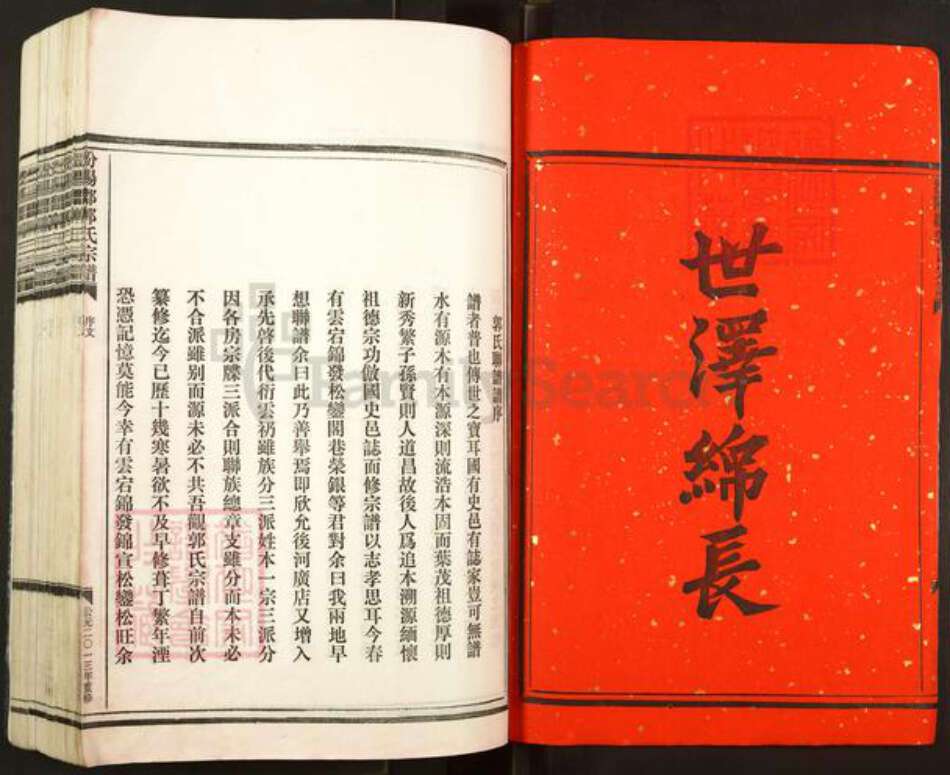 世澤綿長
郭氏聯譜譜序
譜者普也傳世之寶耳國有史邑有誌家豈可無譜
水有源木有本源深則流浩本固而葉茂祖德厚則
新秀繁子孫賢則人道昌故後人爲追本溯源緬懷
祖德宗功倣國史邑誌而修宗譜以志孝思耳今春
有雲宕錦發松鑾閣巷榮銀等君對余曰我兩地早
想聯譜余曰此乃善舉焉即欣允後河廣店又增入
承先啓後代衍雲礽雖族分三派姓本一宗三派分
因各房宗牒三派合則聯族總章支雖分而本未必
不合派雖别而源未必不共吾觀郭氏宗譜自前次
纂修迄今已歷十幾寒暑欲不及早修葺丁繁年湮
恐憑記憶莫能今幸有雲宕錦發錦宣松鑾松旺余
汾陽郡郭氏宗譜
序文
公元二〇一三年重修
FamilySearch